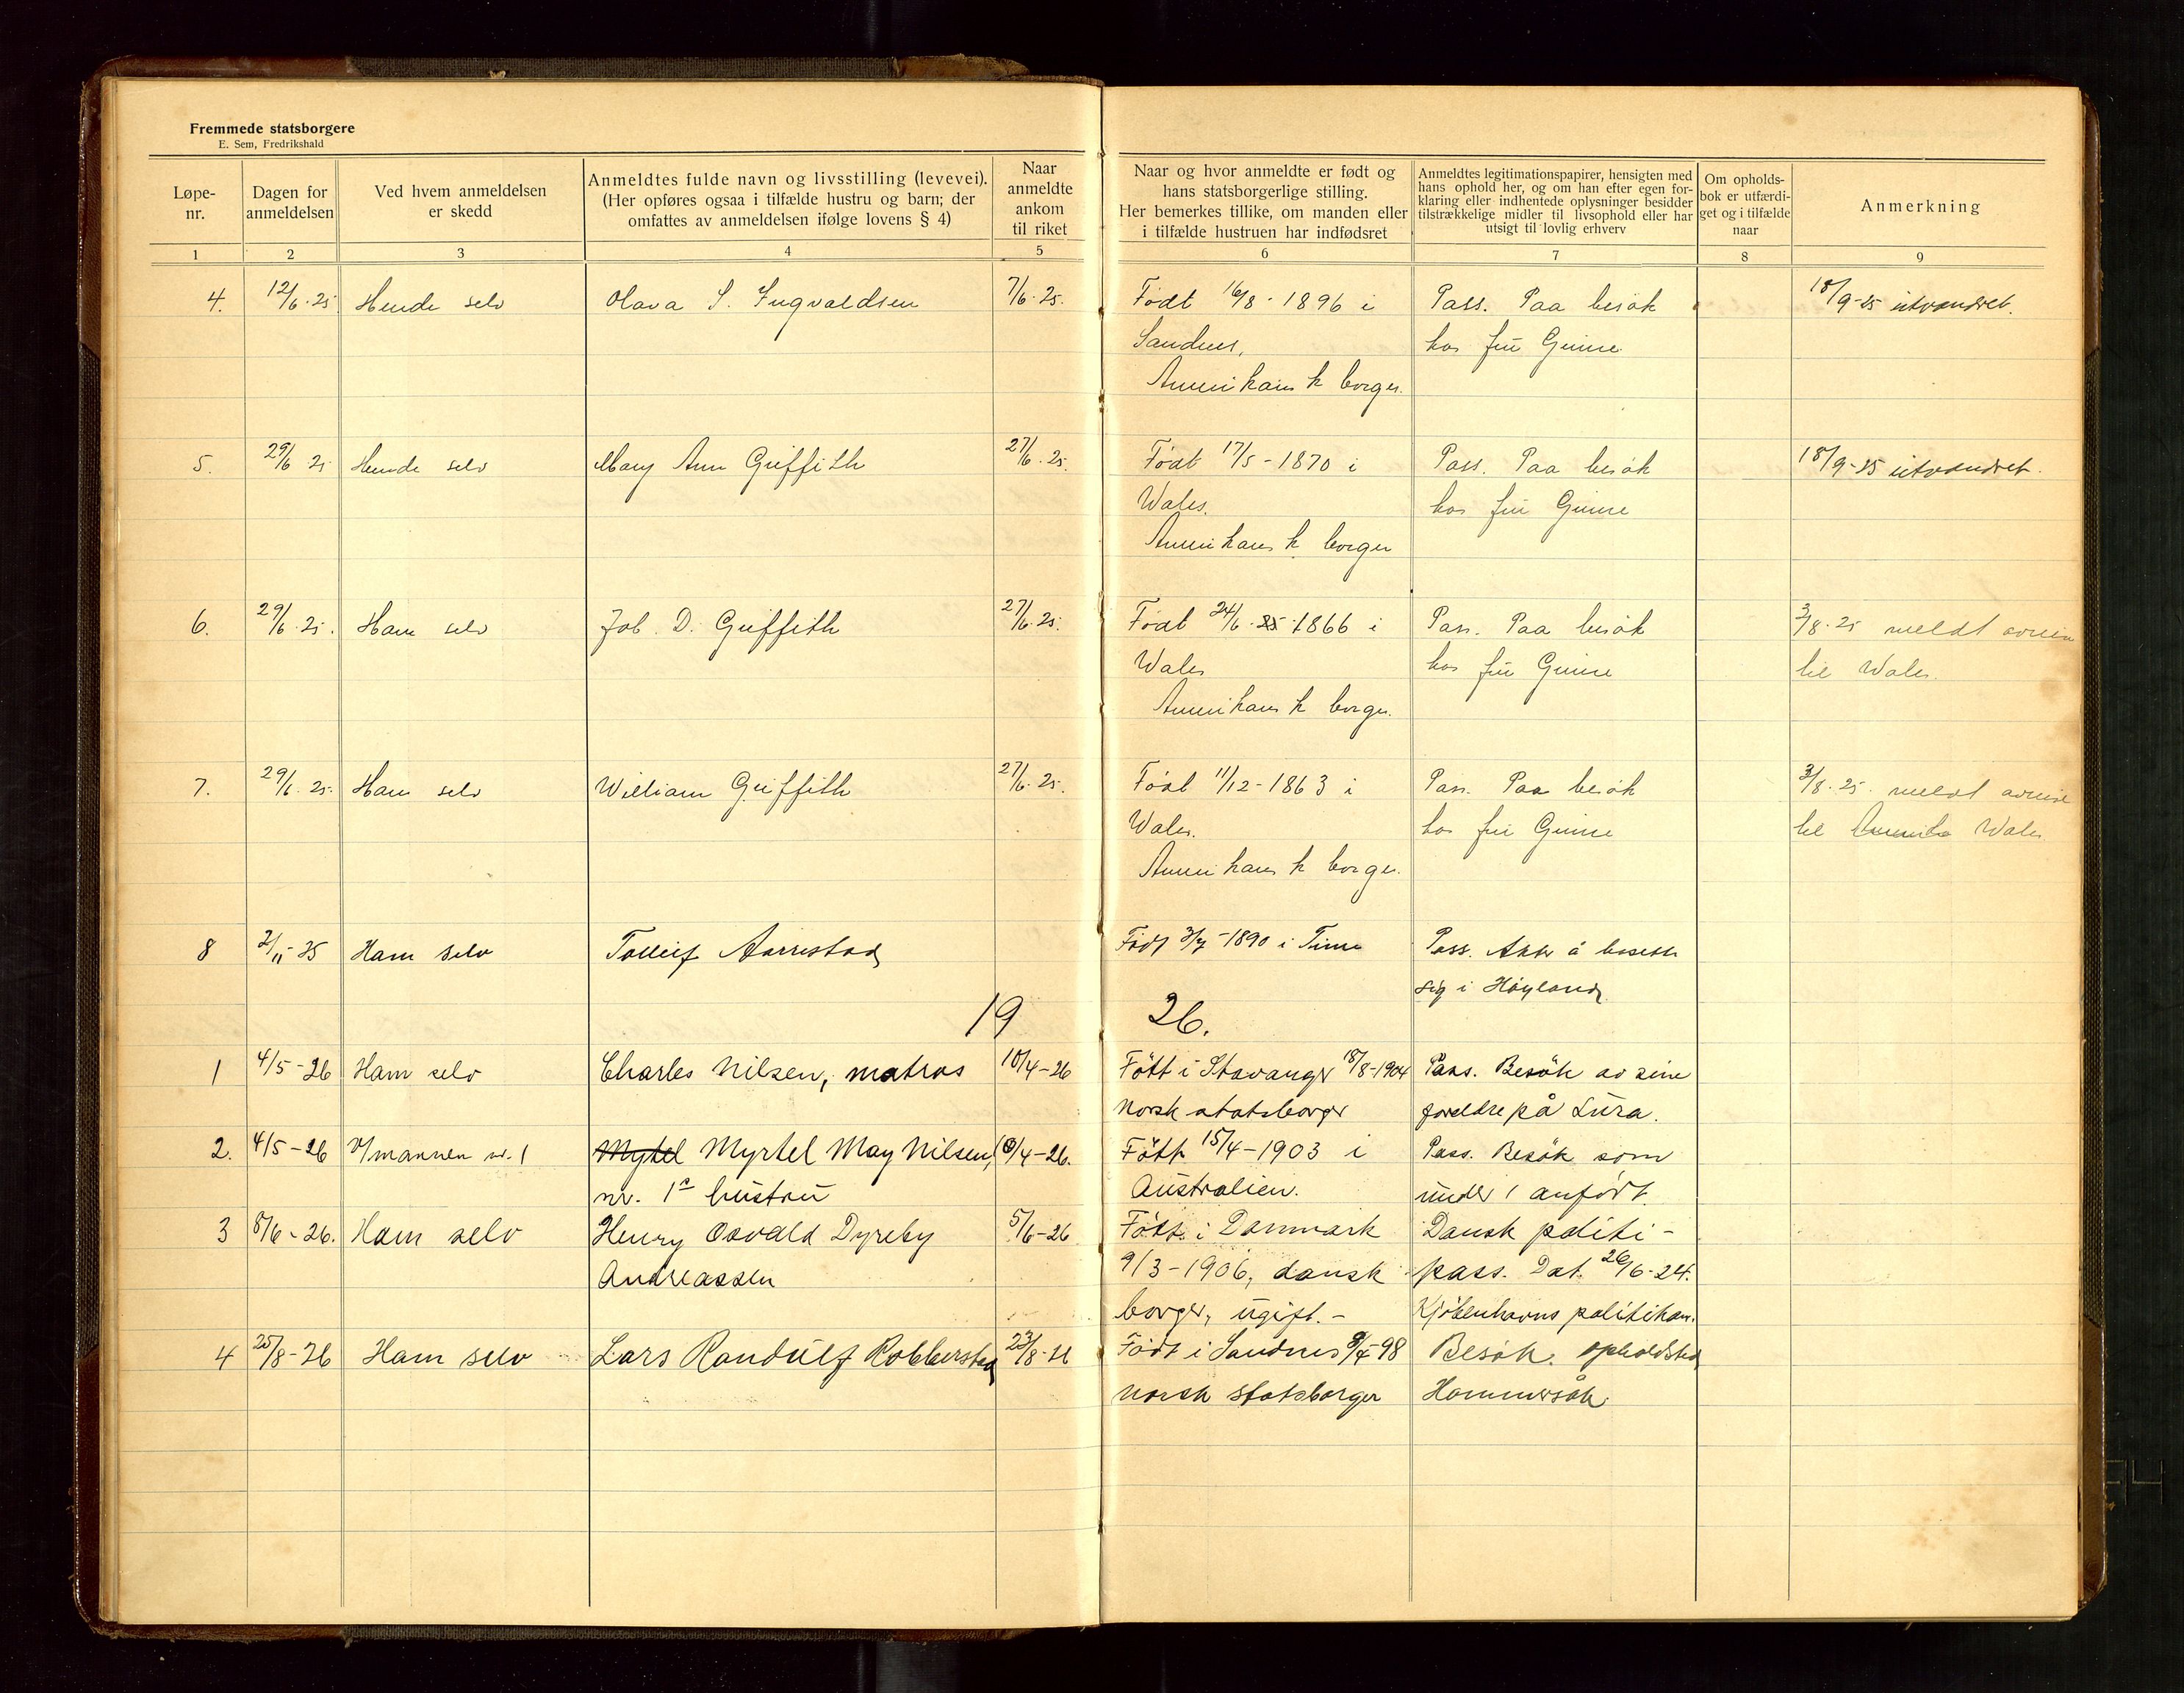 Fremmede statsborgere
E. Sem, Fredrikshald
Løpe-nr.
Dagen for anmeldelsen
Ved hvem anmeldelsen er skedd
Anmeldtes fulde navn og livsstilling (levevei).
(Her opføres ogsaa i tilfælde hustru og barn; der
omfattes av anmeldelsen ifølge lovens § 4)
Naar anmeldte ankom til riket
Naar og hvor anmeldte er født og
hans statsborgerlige stilling.
Her bemerkes tillike, om manden eller
i tilfælde hustruen har indfødsret
Anmeldtes legitimationspapirer, hensigten med
hans ophold her, og om han efter egen for-
klaring eller indhentede oplysninger besidder
tilstrækkelige midler til livsophold eller har
utsigt til lovlig erhverv
Om opholds-
bok er utfærdi-
get og i tilfælde
naar
Anmerkning
1 2 3 4 5 6 7 8 9
4. 12/6. 25 Hende selv Olava S. Ingvaldsen 7/6. 25. Født 16/8 - 1896 i Pass. Paa besøk 18/9-25 utvandret.
Sandnes, hos fru Gimre
Amerikansk borger.
5. 29/6 25 Hende selv Mary Ann Griffith 27/6. 25. Født 17/5 - 1870 i Pass. Paa besøk 18/9-25 utvandret.
Wales. hos fru Gimre
Amerikansk borger
6. 29/6. 25. Ham selv Job. D. Griffith 27/6. 25. Født 24/6. 25 1866 i Pass. Paa besøk 3/8. 25 meldt avreise
Wales hos fru Gimre til Wales.
Amerikansk borger.
7. 29/6. 25. Ham selv William Griffith 27/6. 25. Født 11/12 - 1863 i Pass. Paa besøk 3/8. 25. meldt avreise
Wales. hos fru Gimre til Amerika Wales
Amerikansk borger.
8 2/11 - 25 Ham selv Tolleif Aarrestad Født 3/7 - 1890 i Time Pass. Akter å bosette
sig i Høyland
19 26.
1 4/5 - 26 Ham selv Charles Nilsen, matros 10/4 - 26 Født i Stavanger 18/8-1904 Pass. Besøk av sine
norsk statsborger foreldre på Lura.
2. 4/5 - 26 v/mannen nr. 1 Mytel Myrtel May Nilsen, 10/4 - 26. Født 15/4 - 1903 i Pass. Besøk som
nr. 1s hustru Australien. under 1 anført.
3 8/6 - 26. Ham selv Henry Osvald Dyreby 5/6 - 26 Født i Danmark Dansk politi-
Andreassen 9/3 - 1906, dansk pass. Dat. 26/6-24.
borger, ugift. - Kjøbenhavns politikam.
4 25/8 - 26 Ham selv Lars Randulf Robberstad 23/8 - 26 Født i Sandnes 9/4-98 Besøk. opholdsted
norsk statsborger Hommersåk.